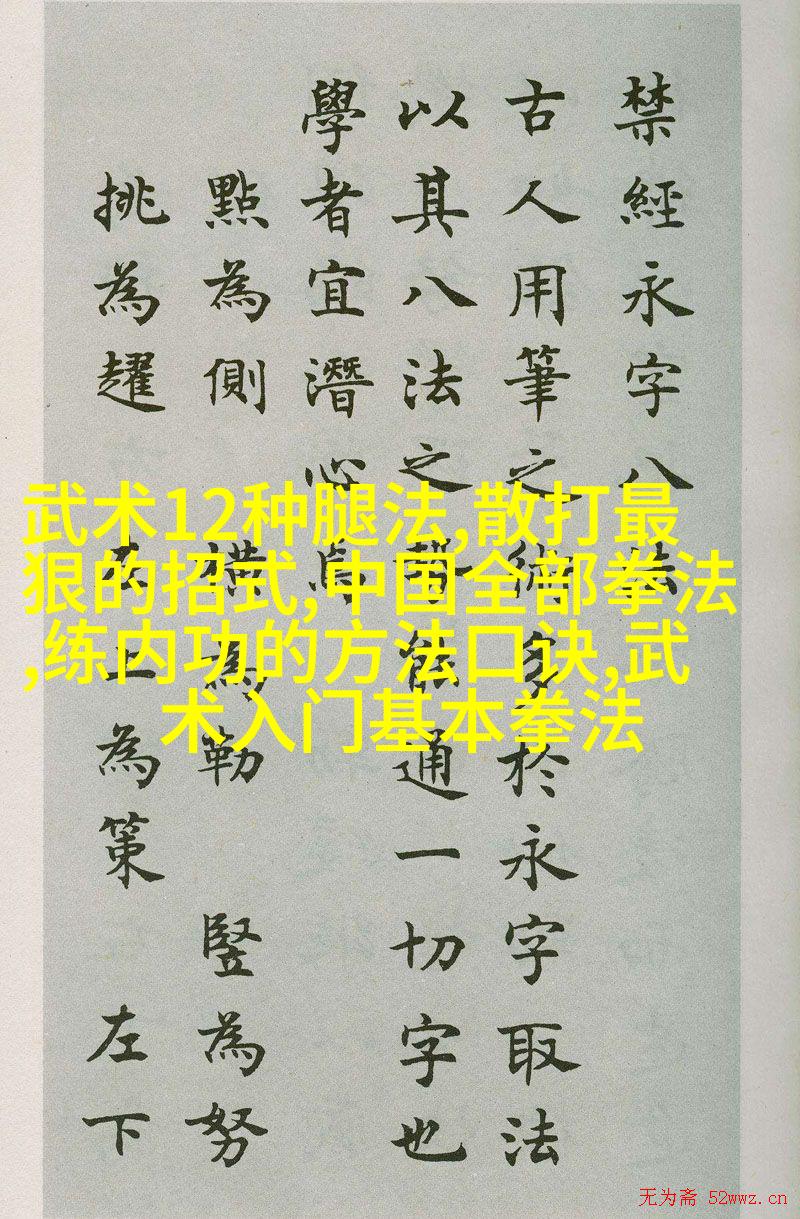 禁經永字八法
古人用筆之多於永字取法
以其八法之勢能通一切字也
學者宜潛心焉
點為側 橫為勒 豎為努
挑為趯 左上為策 左下
武术12种腿法,散打最
狠的招式,中国全部拳法
,练内功的方法口诀,武
术入门基本拳法
无为斋 52wwz.cn